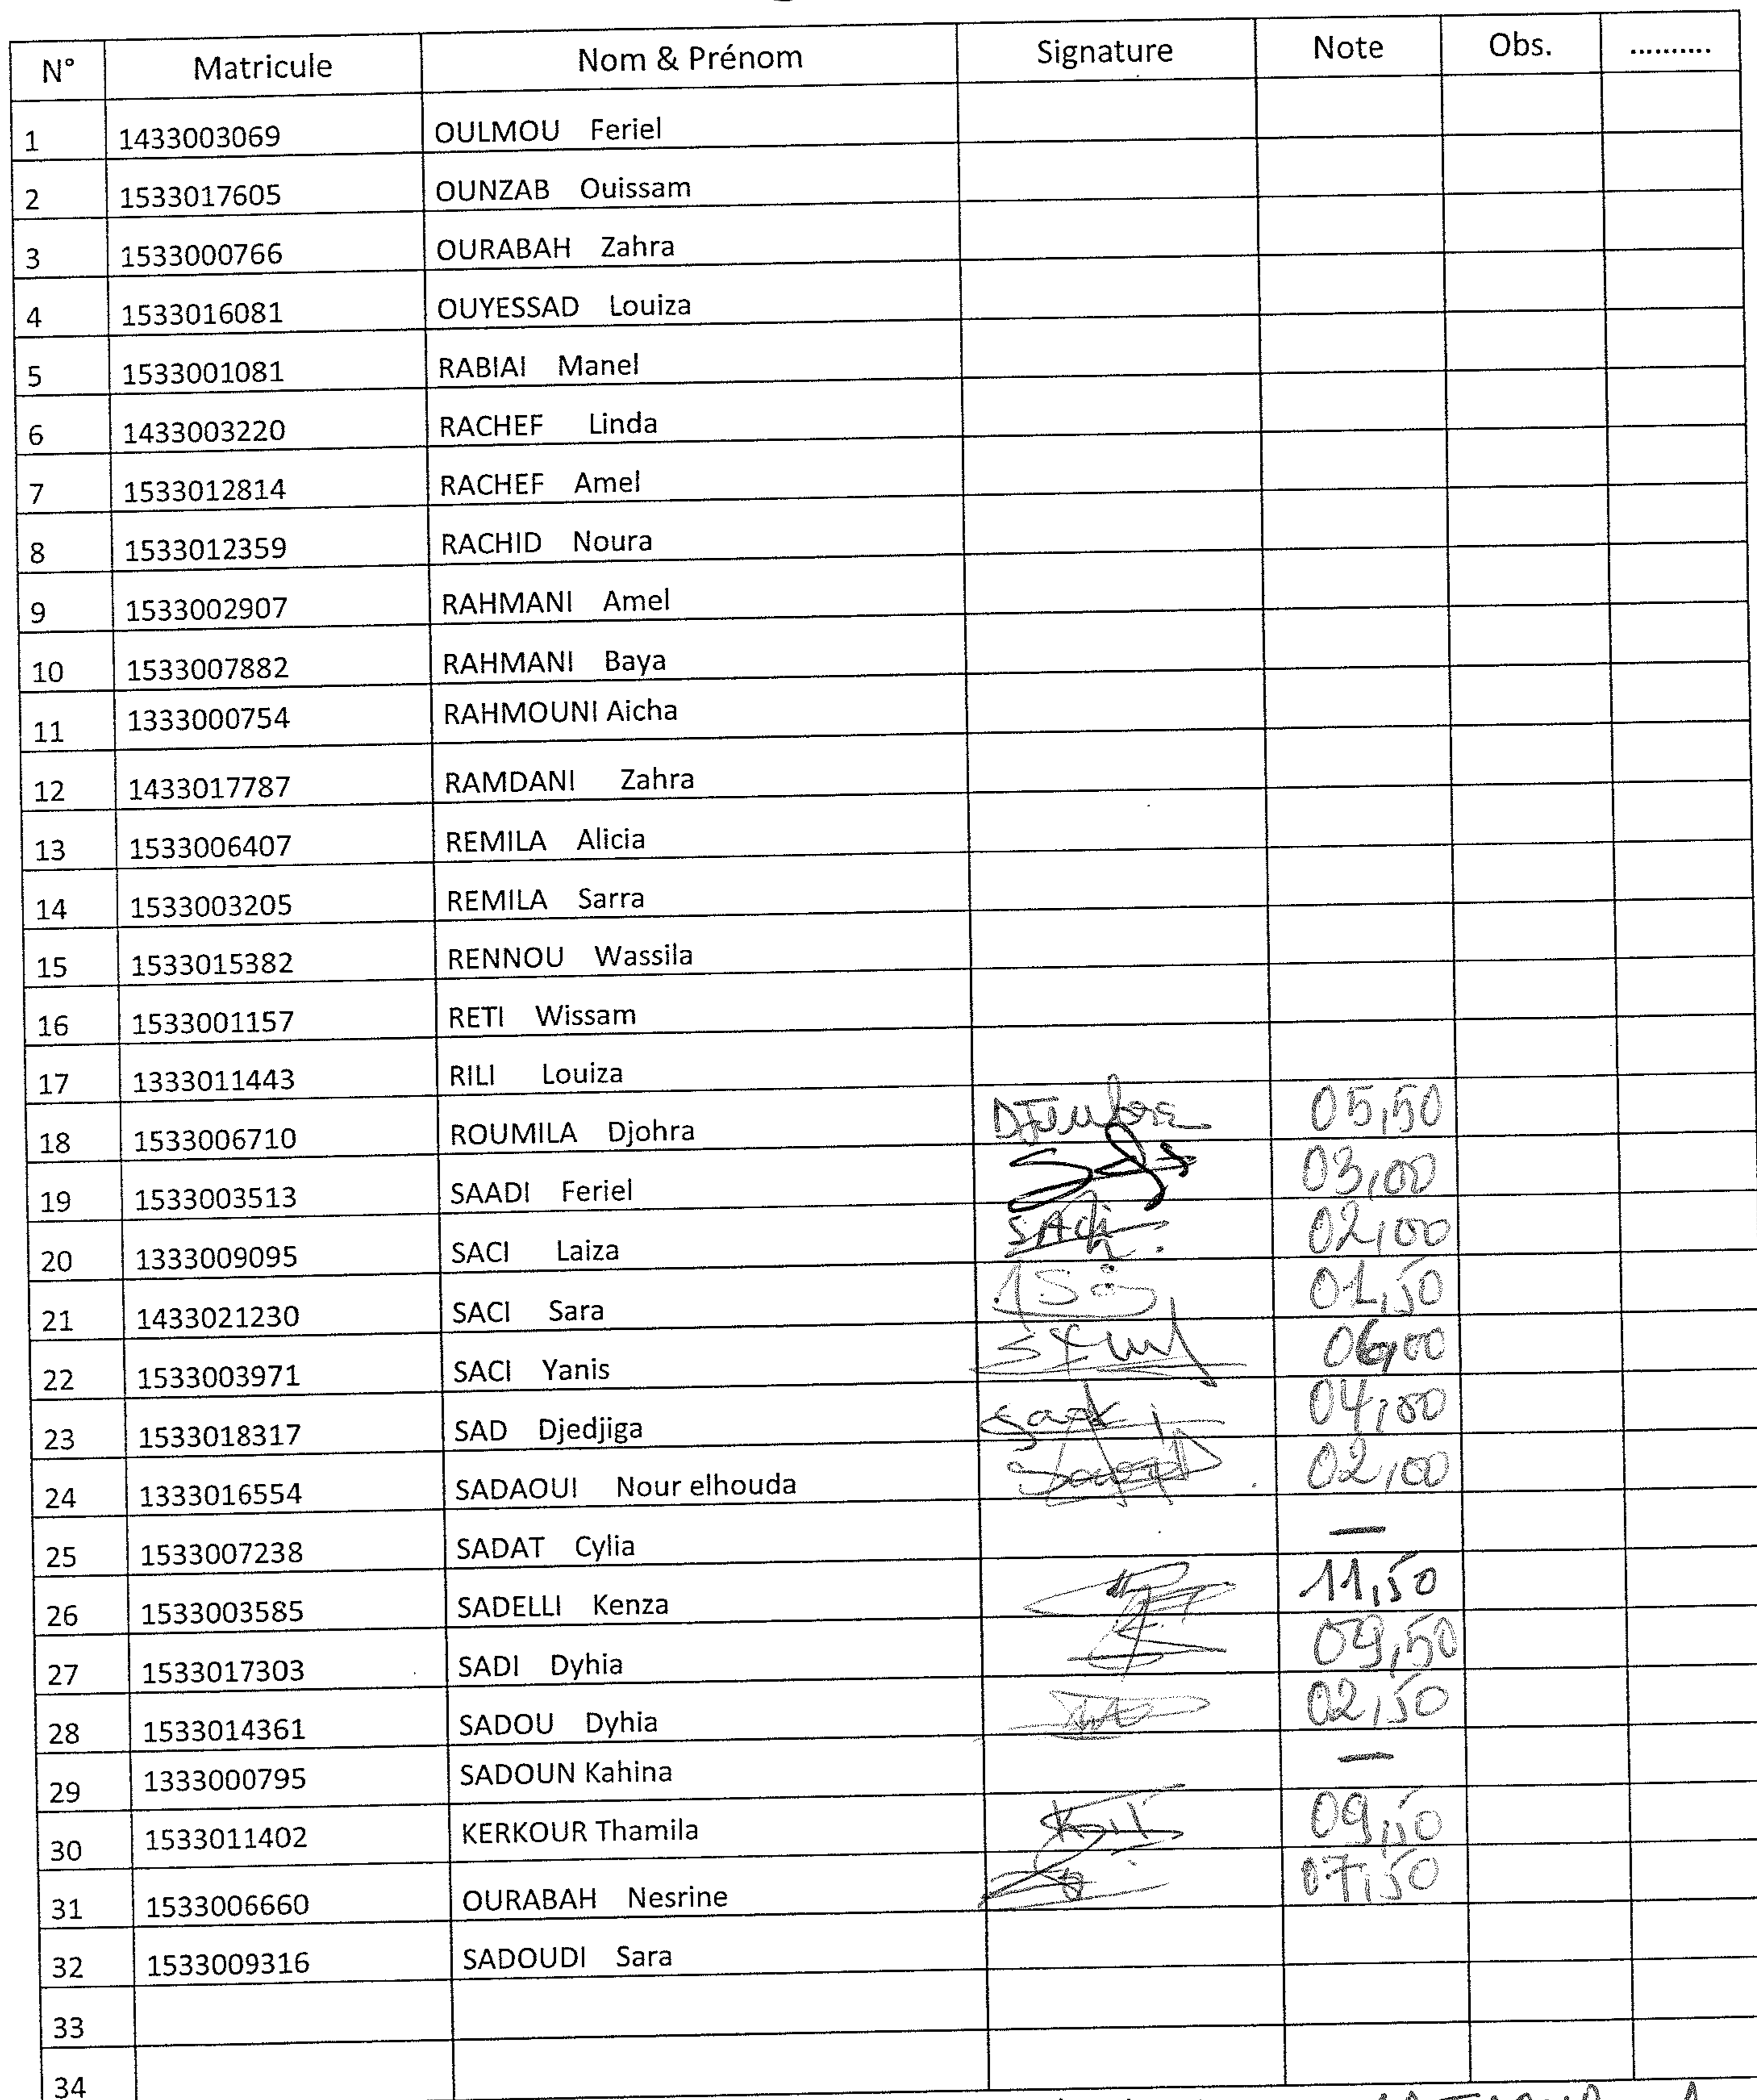 N° Matricule Nom & Prénom Signature Note Obs. ..........
1 1433003069 OULMOU Feriel
2 1533017605 OUNZAB Ouissam
3 1533000766 OURABAH Zahra
4 1533016081 OUYESSAD Louiza
5 1533001081 RABIAI Manel
6 1433003220 RACHEF Linda
7 1533012814 RACHEF Amel
8 1533012359 RACHID Noura
9 1533002907 RAHMANI Amel
10 1533007882 RAHMANI Baya
11 1333000754 RAHMOUNI Aicha
12 1433017787 RAMDANI Zahra
13 1533006407 REMILA Alicia
14 1533003205 REMILA Sarra
15 1533015382 RENNOU Wassila
16 1533001157 RETI Wissam
17 1333011443 RILI Louiza
18 1533006710 ROUMILA Djohra 05,50
19 1533003513 SAADI Feriel 03,00
20 1333009095 SACI Laiza 02,00
21 1433021230 SACI Sara 01,50
22 1533003971 SACI Yanis 06,00
23 1533018317 SAD Djedjiga 04,00
24 1333016554 SADAOUI Nour elhouda 02,00
25 1533007238 SADAT Cylia —
26 1533003585 SADELLI Kenza 11,50
27 1533017303 SADI Dyhia 09,50
28 1533014361 SADOU Dyhia 02,50
29 1333000795 SADOUN Kahina —
30 1533011402 KERKOUR Thamila 09,50
31 1533006660 OURABAH Nesrine 07,50
32 1533009316 SADOUDI Sara
33
34